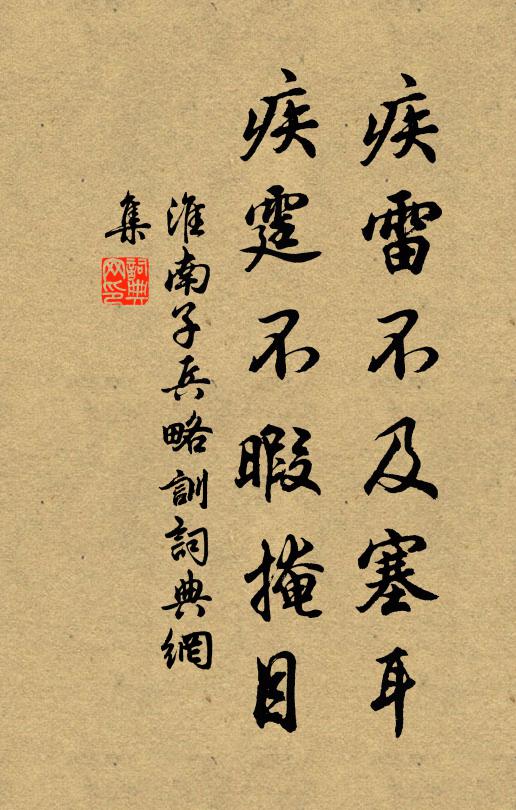 疾雷不及塞耳
疾霆不暇掩目
淮南子兵略訓詞典網
集
詞典
网印